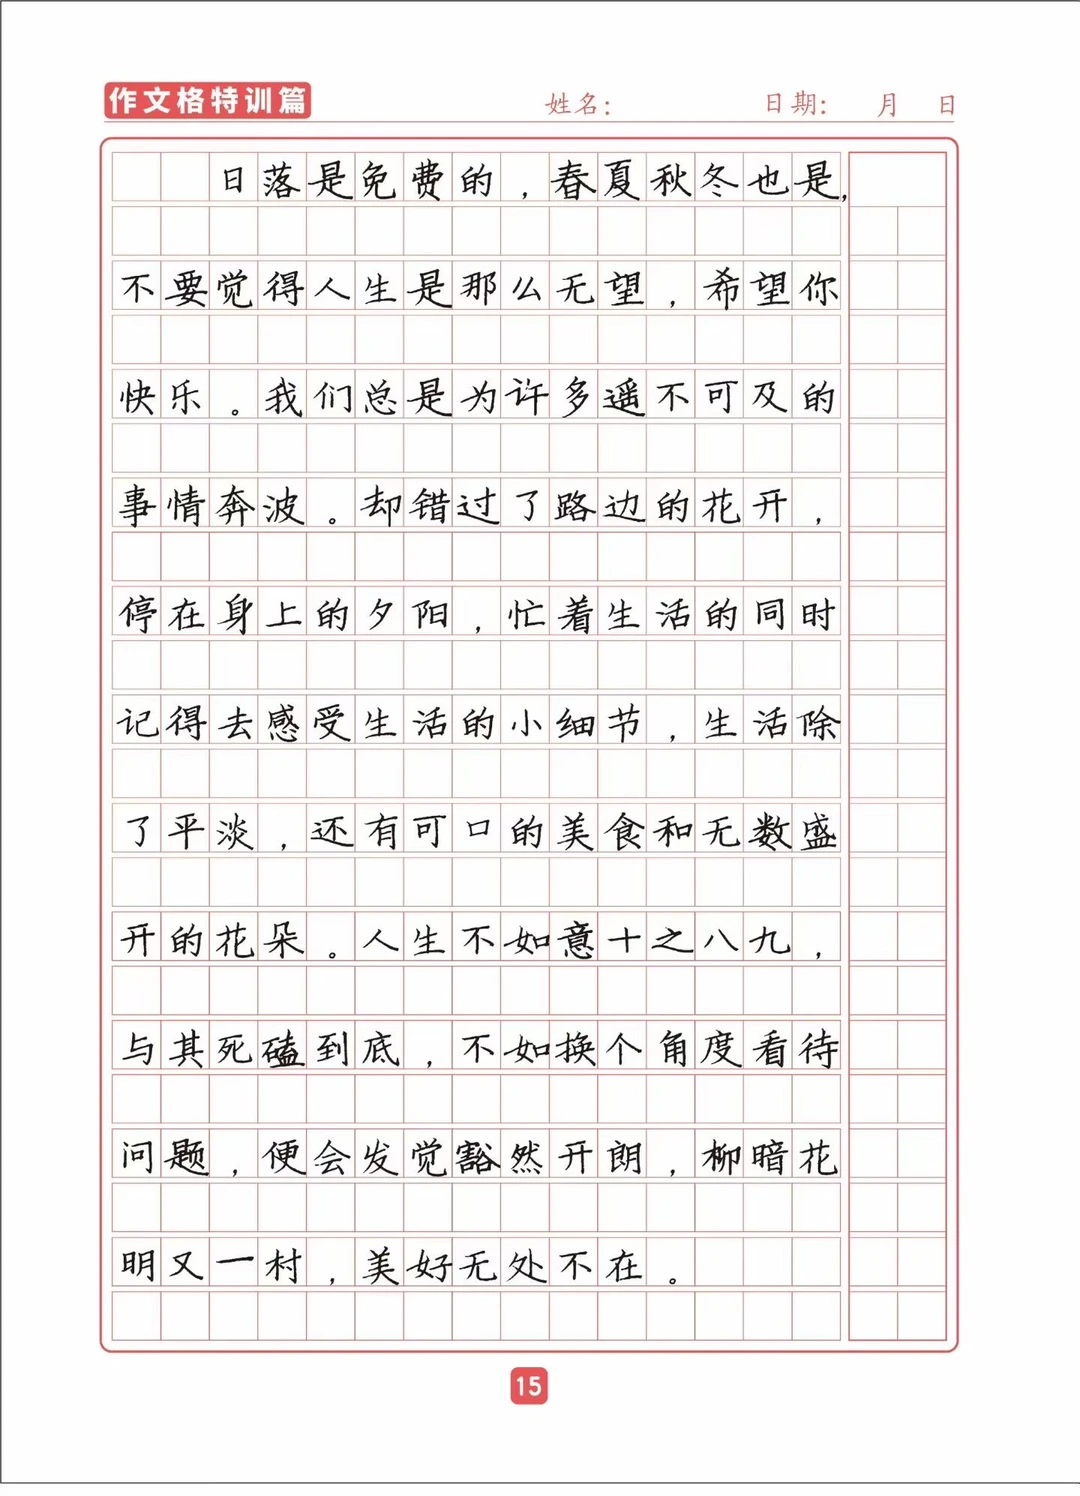 作文格特训篇 姓名: 日期: 月 日
日落是免费的，春夏秋冬也是，
不要觉得人生是那么无望，希望你
快乐。我们总是为许多遥不可及的
事情奔波。却错过了路边的花开，
停在身上的夕阳，忙着生活的同时
记得去感受生活的小细节，生活除
了平淡，还有可口的美食和无数盛
开的花朵。人生不如意十之八九，
与其死磕到底，不如换个角度看待
问题，便会发觉豁然开朗，柳暗花
明又一村，美好无处不在。
15